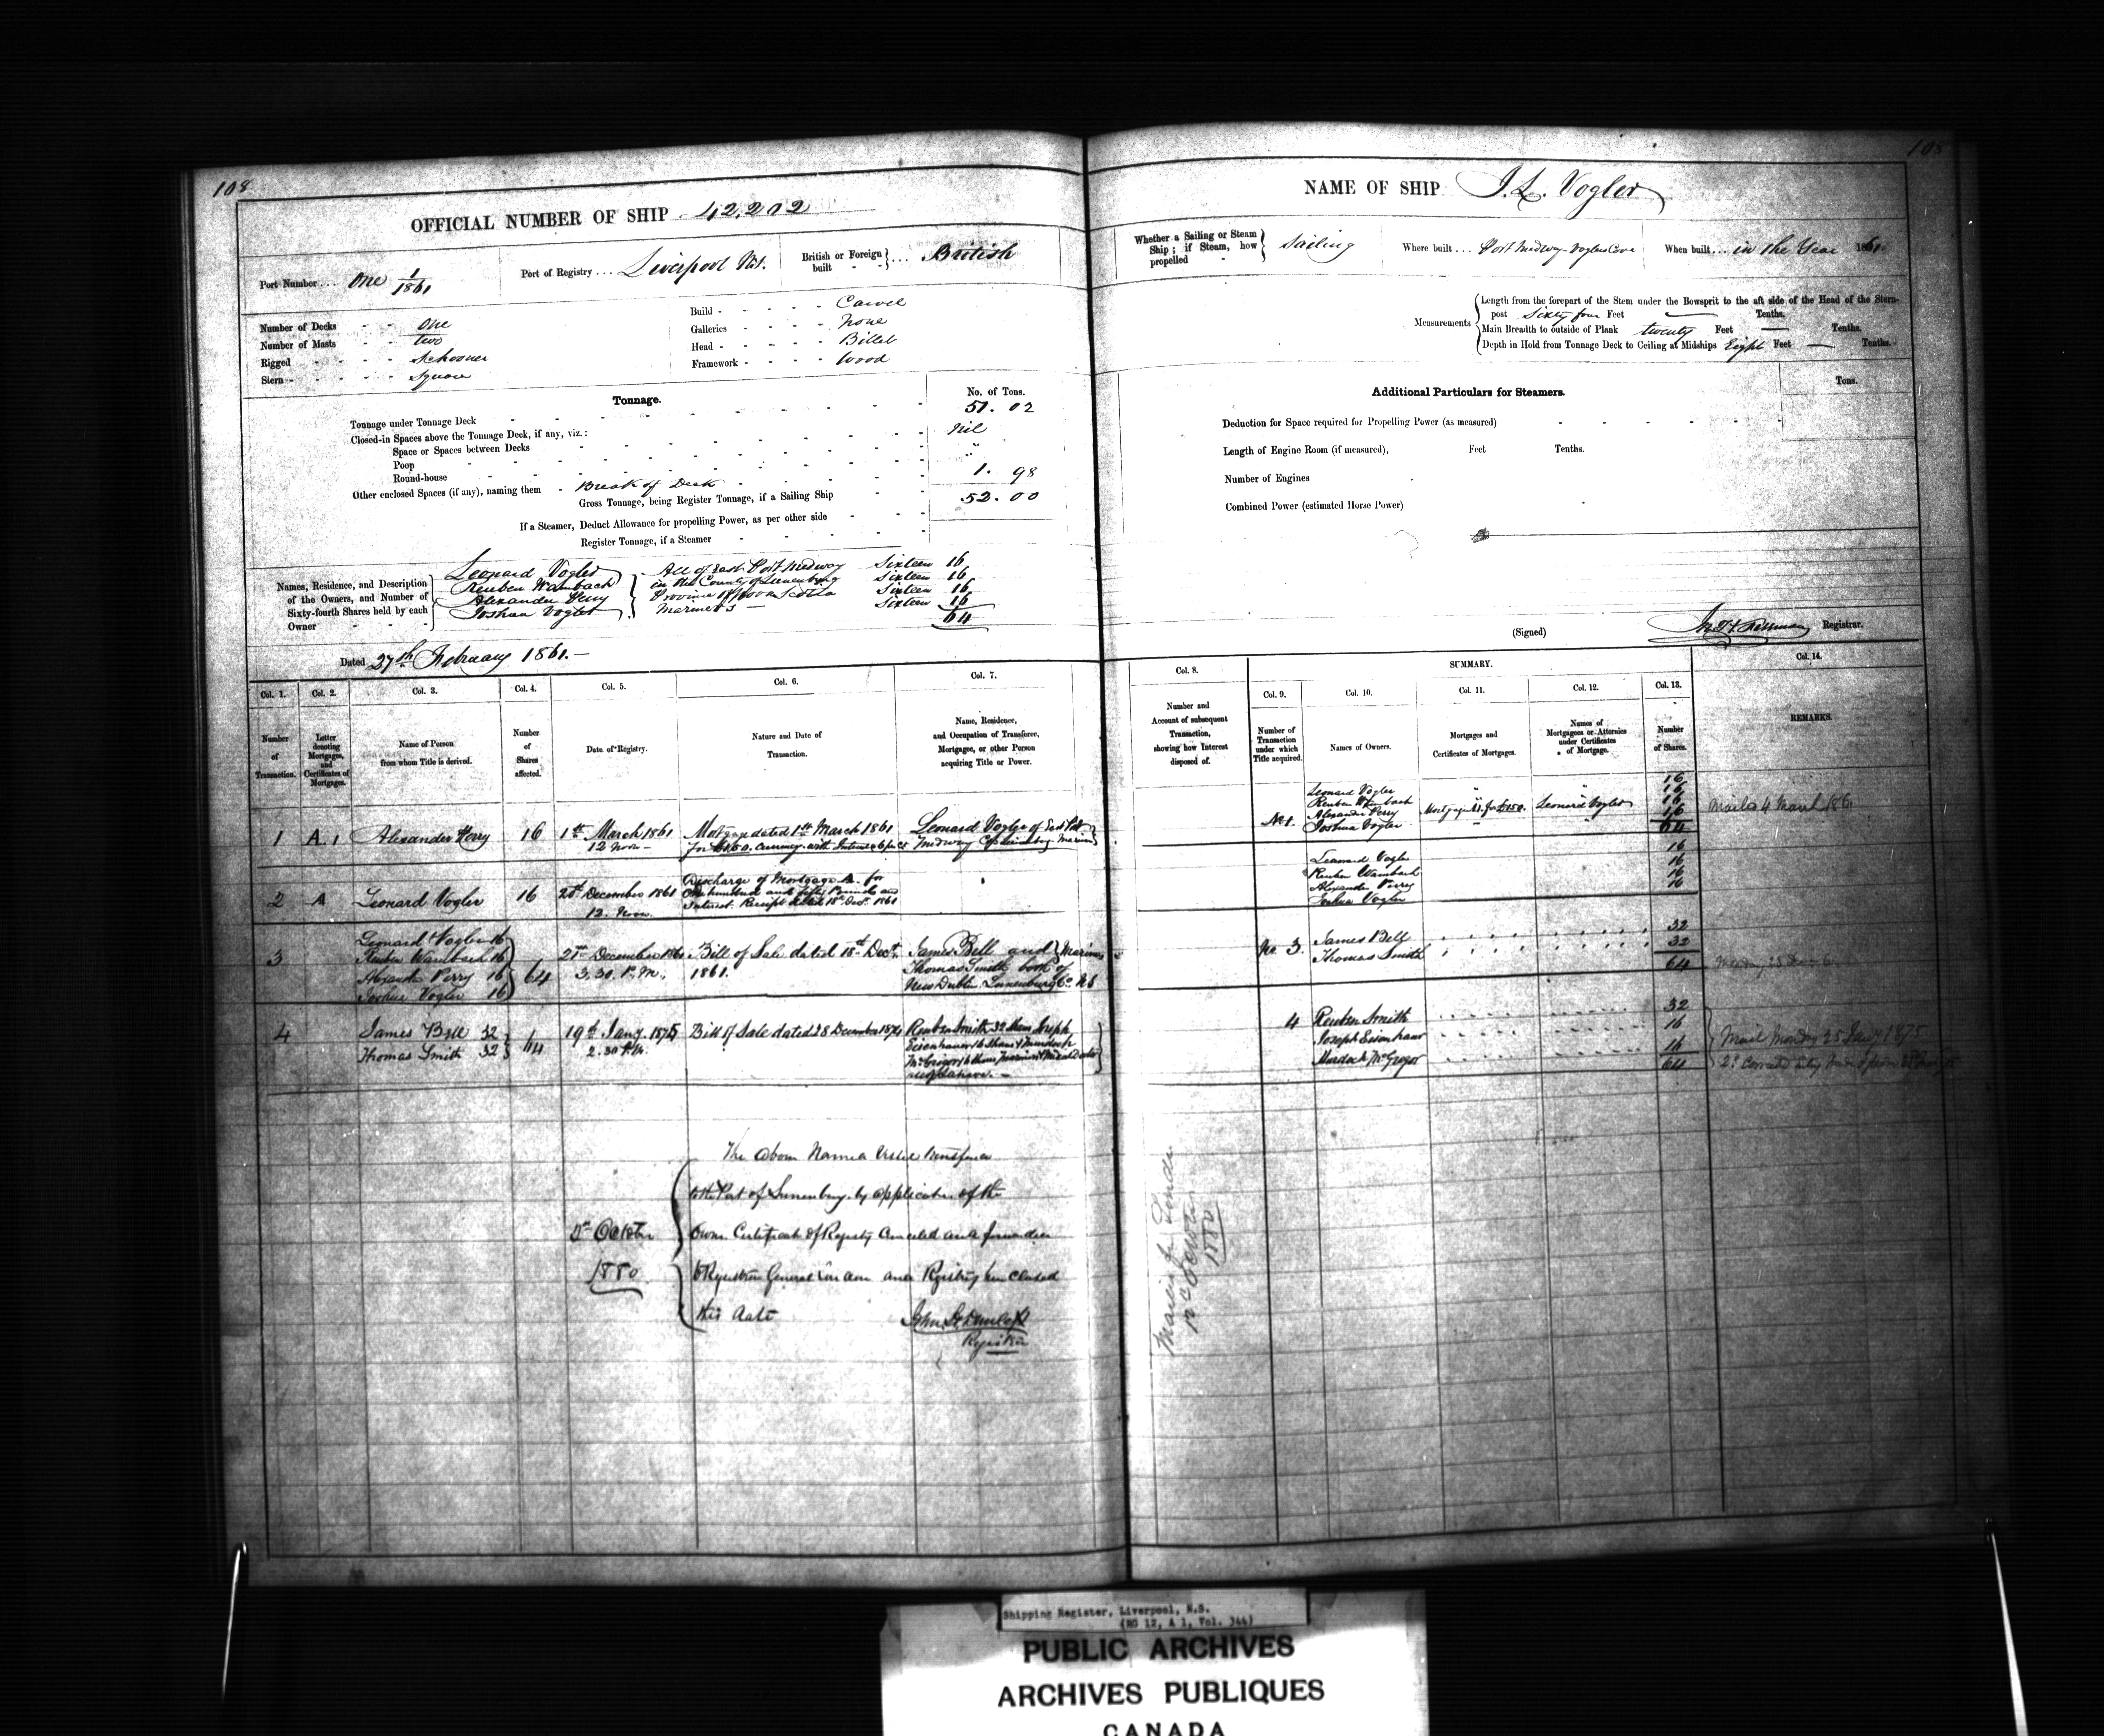 108
OFFICIAL NUMBER OF SHIP 42,202
Port Number ... One 1/1861
Port of Registry ... Liverpool N.S.
British or Foreign built - - } ... British
Number of Decks - - One
Number of Masts - - two
Rigged - - - - Schooner
Stern - - - - - Square
Build - - - - - Carvel
Galleries - - - - None
Head - - - - - Billet
Framework - - - - Wood
Tonnage.
No. of Tons.
Tonnage under Tonnage Deck 51. 02
Closed-in Spaces above the Tonnage Deck, if any, viz.: Nil
Space or Spaces between Decks "
Poop
Round-house
Other enclosed Spaces (if any), naming them - Break of Deck 1. 98
Gross Tonnage, being Register Tonnage, if a Sailing Ship 52.00
If a Steamer, Deduct Allowance for propelling Power, as per other side
Register Tonnage, if a Steamer
Names, Residence, and Description of the Owners, and Number of Sixty-fourth Shares held by each Owner
Leonard Vogler All of East Port Medway Sixteen 16
Reuben Wambach in the County of Lunenburg Sixteen 16
Alexander Perry Province of Nova Scotia Sixteen 16
Joshua Vogler Mariners Sixteen 16
64
Dated 27th February 1861.
Col. 1. Col. 2. Col. 3. Col. 4. Col. 5. Col. 6. Col. 7.
Number of Transaction.
Letter denoting Mortgages, and Certificates of Mortgages.
Name of Person from whom Title is derived.
Number of Shares affected.
Date of Registry.
Nature and Date of Transaction.
Name, Residence, and Occupation of Transferee, Mortgagee, or other Person acquiring Title or Power.
1 A. 1 Alexander Perry 16 1st March 1861 Mortgage dated 1st March 1861 Leonard Vogler of East Port
12 Noon for £150. currency with Interest Medway
2 A Leonard Vogler 16 20th December 1861 Discharge of Mortgage A. for
12. Noon. One hundred and fifty Pounds and
Interest. Receipt dated 18th Dec. 1861
3 Leonard Vogler 16
Reuben Wambach 16
Alexander Perry 16
Joshua Vogler 16
64
December 1861 3.30. P.M.
Bill of Sale dated 18th Decr. 1861.
James Bell and
Thomas Smith both of
New Dublin Lunenburg Co. NS
Mariners
4 James Bell 32
Thomas Smith 32
64
19th Jany. 1875 2.30 P.M.
Bill of Sale dated 28 December 1874
Reuben Smith 32 Shares Joseph
Eisenhauer 16 Shares & Murdoch
McGregor 16 Shares
The above Named Vessel transferred
to the Port of Lunenburg by application of the
Owner Certificate of Registry Cancelled and forwarded
to Registrar General and Registry here Closed
this date
October
1880
Registrar
108
NAME OF SHIP J. L. Vogler
Whether a Sailing or Steam Ship; if Steam, how propelled - } Sailing
Where built ... Port Medway Voglers Cove
When built ... in the Year 1860
Measurements
Length from the forepart of the Stem under the Bowsprit to the aft side of the Head of the Stern-
post Sixty four Feet — Tenths.
Main Breadth to outside of Plank twenty Feet — Tenths.
Depth in Hold from Tonnage Deck to Ceiling at Midships Eight Feet — Tenths.
Additional Particulars for Steamers.
Tons.
Deduction for Space required for Propelling Power (as measured)
Length of Engine Room (if measured), Feet Tenths.
Number of Engines
Combined Power (estimated Horse Power)
(Signed) Registrar.
SUMMARY.
Col. 8. Col. 9. Col. 10. Col. 11. Col. 12. Col. 13. Col. 14.
Number and Account of subsequent Transaction, showing how Interest disposed of.
Number of Transaction under which Title acquired.
Names of Owners.
Mortgages and Certificates of Mortgages.
Names of Mortgagees or Attornies under Certificates of Mortgage.
Number of Shares.
REMARKS.
Leonard Vogler 16
Reuben Wambach 16
No 1. Alexander Perry Mortgage A1. for £150. Leonard Vogler 16
Joshua Vogler 16
64
Mailed 4 March 1861
Leonard Vogler 16
Reuben Wambach 16
Alexander Perry 16
Joshua Vogler 16
No 3 James Bell 32
Thomas Smith 32
64
4 Reuben Smith 32
Joseph Eisenhauer 16
Murdoch McGregor 16
64
Mail Monday 25 Jany 1875
1880
Shipping Register, Liverpool, N.S.
(RG 12, A 1, Vol. 344)
PUBLIC ARCHIVES
ARCHIVES PUBLIQUES
CANADA